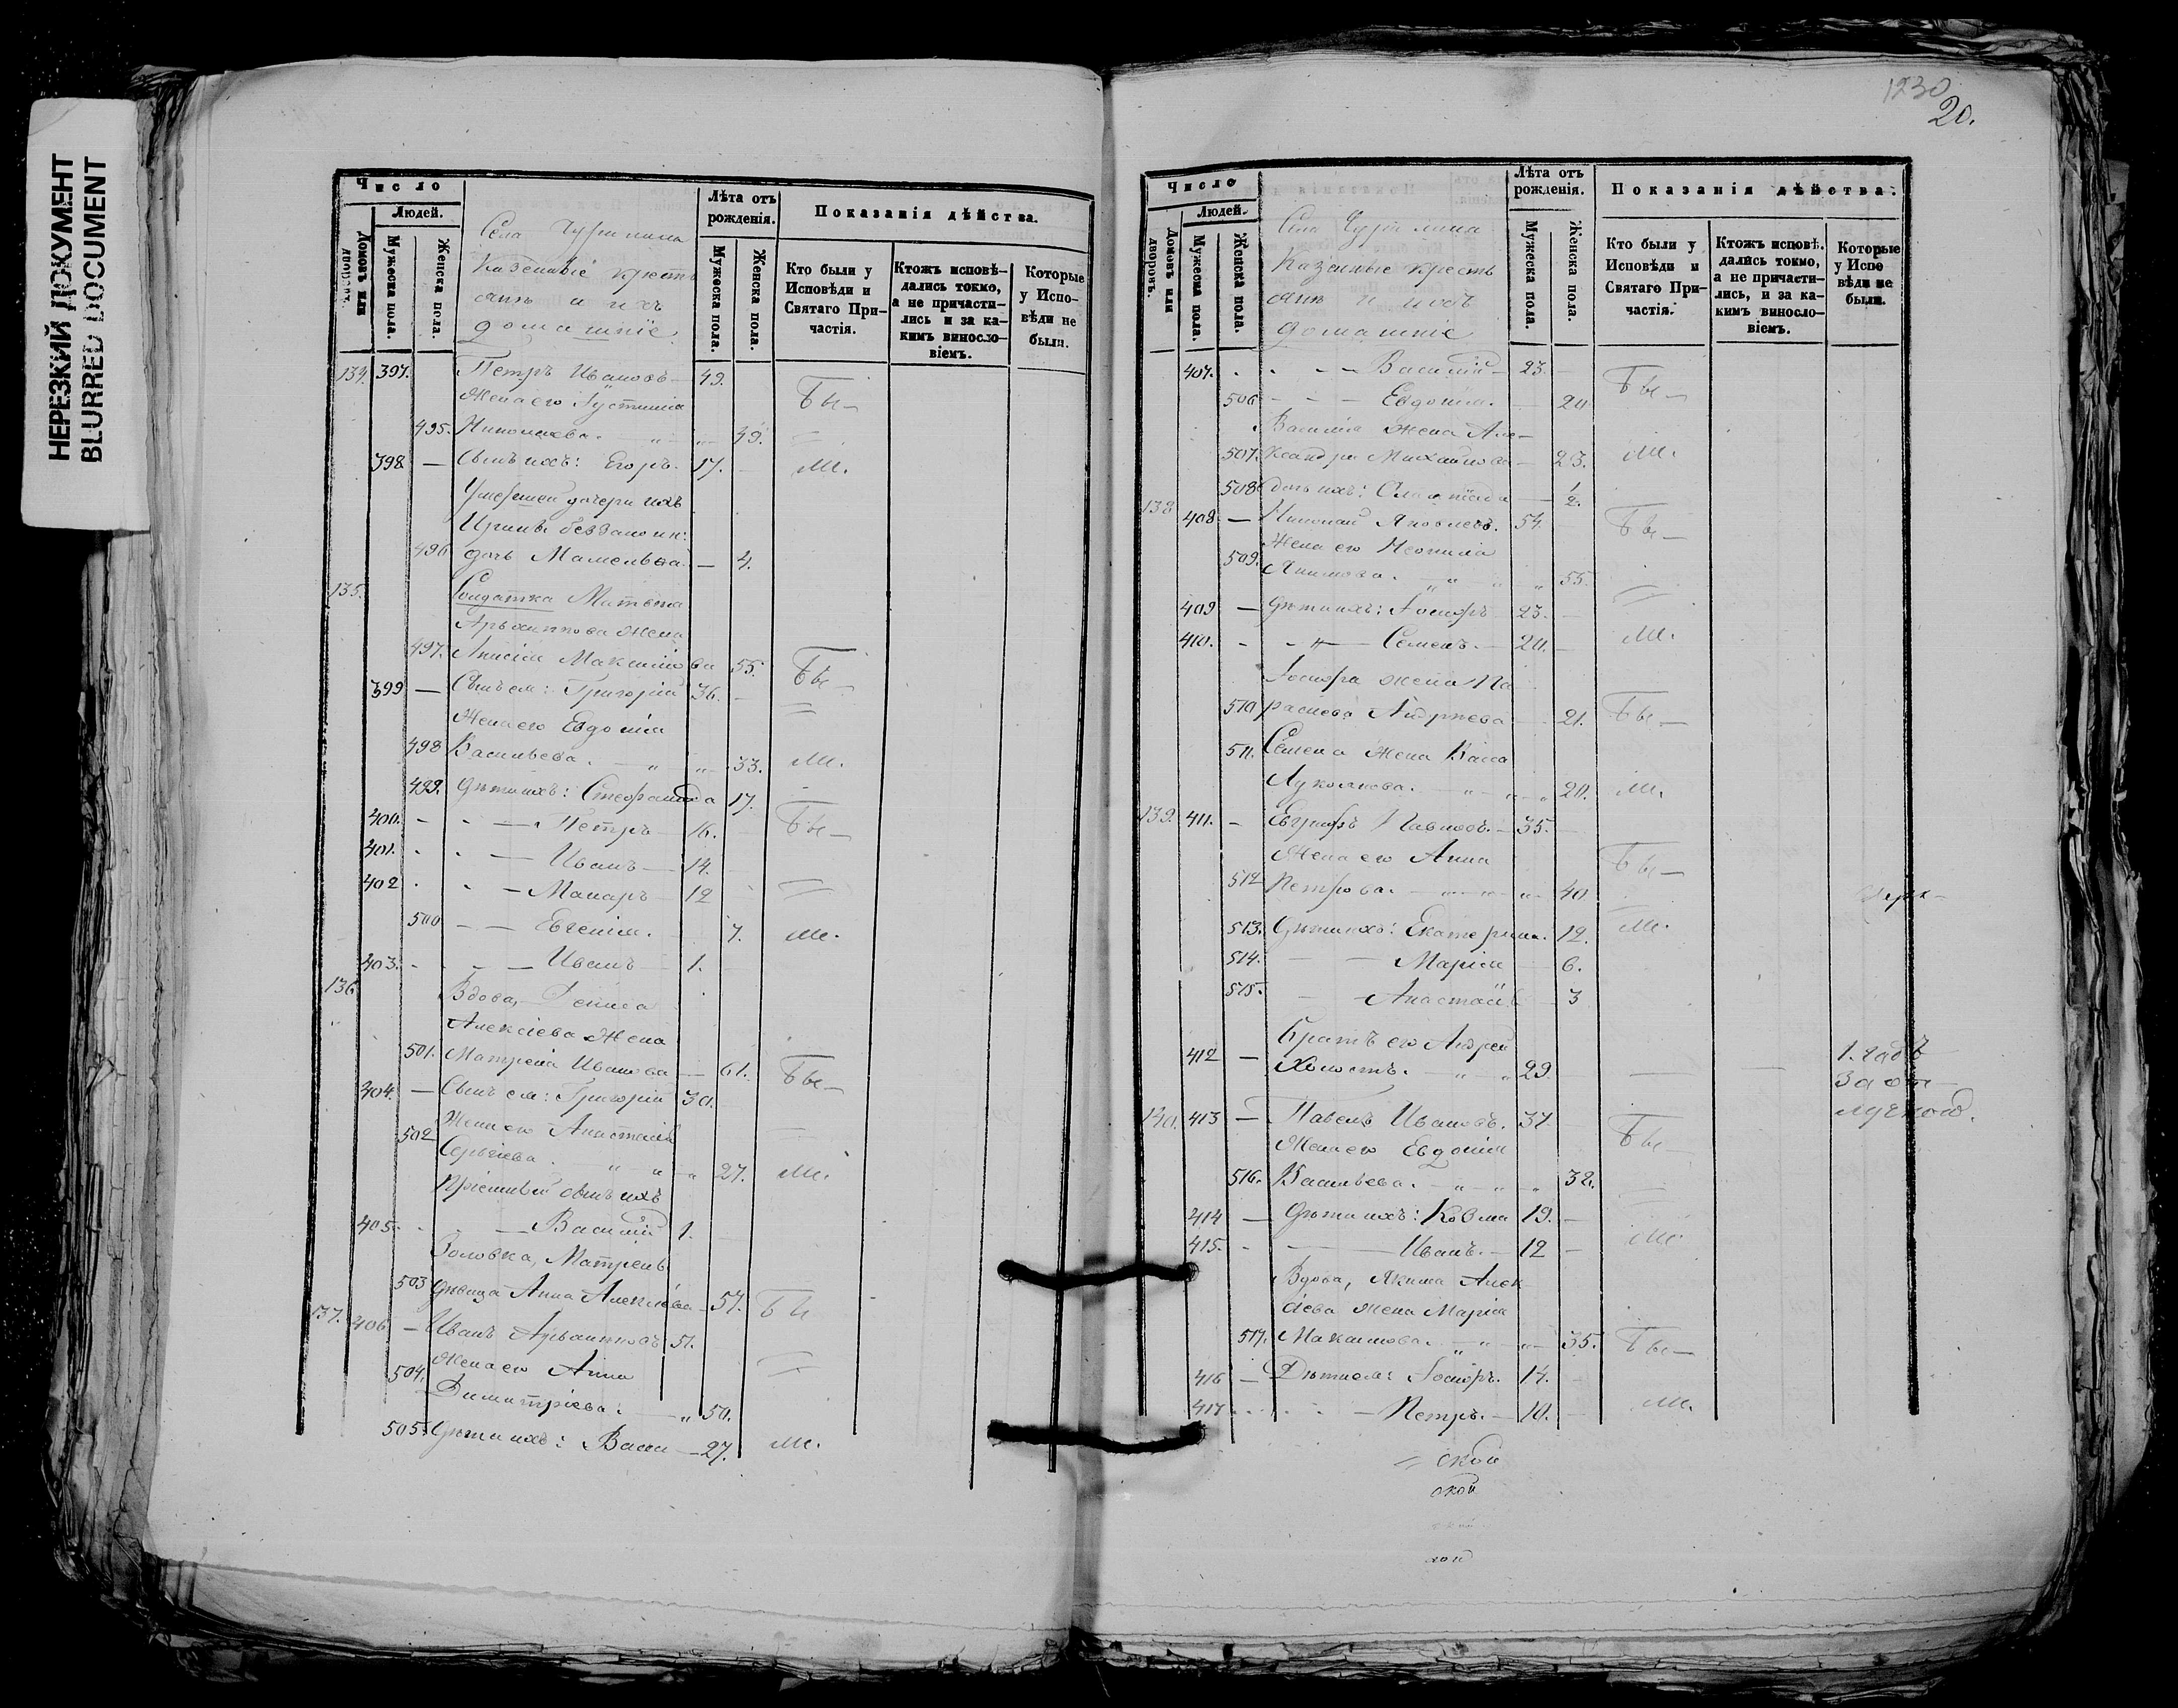 НЕРЕЗКИЙ ДОКУМЕНТ
BLURRED DOCUMENT
Число
Людей.
Домовъ или дворовъ.
Мужеска пола.
Женска пола.
Села
Казенные кресть
яне и ихъ
домашніе
Лѣта отъ рожденія.
Мужеска пола.
Женска пола.
Показанія дѣйства.
Кто были у Исповѣди и Святаго При-частія.
Ктожъ исповѣ-дались токмо, а не причасти-лись и за ка-кимъ винословіемъ.
Которые у Испо-вѣди не были.
134. 397. Петръ Ивановъ 49.
Жена его Іустинія Бы
495. Николаева. 49.
398 — Сынъ ихъ: Егоръ. 17. — м.
Умершей дочери ихъ
Ирины
496 дочь — 4.
135. Солдатка
Архиппова жена
497. Анисія Максимова 55. Бы
399 — Сынъ ея: Григорій 36. —
Жена его Евдокія
498 Васильева. 33. м.
499. Дѣти ихъ: Стефанида 17.
400. Петръ 16. Бы
401. Иванъ 14.
402 Макаръ 12
500 Евгенія. 7. м.
403. Иванъ 1.
136. Вдова, Дениса
Алексіева жена
501. Матрена Иванова 61. Бы
404. — Сынъ ея: Григорій 30.
Жена его Анастасія
502 Сергіева. 27. м.
Пріемный сынъ ихъ
405. Василій 1.
Золовка, Матрены
503 дѣвица Анна Алексіева 57. Бы
137. 406 — Иванъ 51.
Жена его Анна
504. Димитріева. 50.
505. Дѣти ихъ: Васса 27. м.
1230
20.
Число
Людей.
Домовъ или дворовъ.
Мужеска пола.
Женска пола.
Села
Казенные кресть
яне и ихъ
домашніе
Лѣта отъ рожденія.
Мужеска пола.
Женска пола.
Показанія дѣйства.
Кто были у Исповѣди и Святаго При-частія.
Ктожъ исповѣ. дались токмо, а не причасти-лись, и за ка-кимъ виносло-віемъ.
Которые у Испо вѣди не были.
407. Василій 23.
506 Евдокія. 20 Бы
Василія жена Але-
507. ксандра Михайлова 23. м.
508 дочь ихъ: 1/2.
138 408 — Николай Яковлевъ. 54. Бы
Жена его Неонила
509. Якимова. 55.
409 — Дѣти ихъ: Іосифъ 23.
410. Семенъ. 20. м.
Іосифа жена Па
510 раскева Андреева 21. Бы
511. Семена жена Васса
Лукоянова. 20. м.
139. 411. — Евграфъ Павловъ. 35.
Жена его Анна Бы
512 Петрова. 40
513. Дѣти ихъ: Екатерина. 12. м.
514. Марія 6.
515. Анастасія 3
Братъ его Андрей
412 — Холостъ. 29. 1. годъ
За от
лучкою.
140. 413 — Павелъ Ивановъ. 37. Бы
Жена его Евдокія
516. Васильева. 32.
414 — Дѣти ихъ: Козма 19. м.
415. Иванъ. 12
Вдова, Якима Алек
сіева жена Марія
517. Максимова. 35. Бы
416 — Дѣти ея: Іосифъ. 14.
417 Петръ. 10. м.
ской
ской